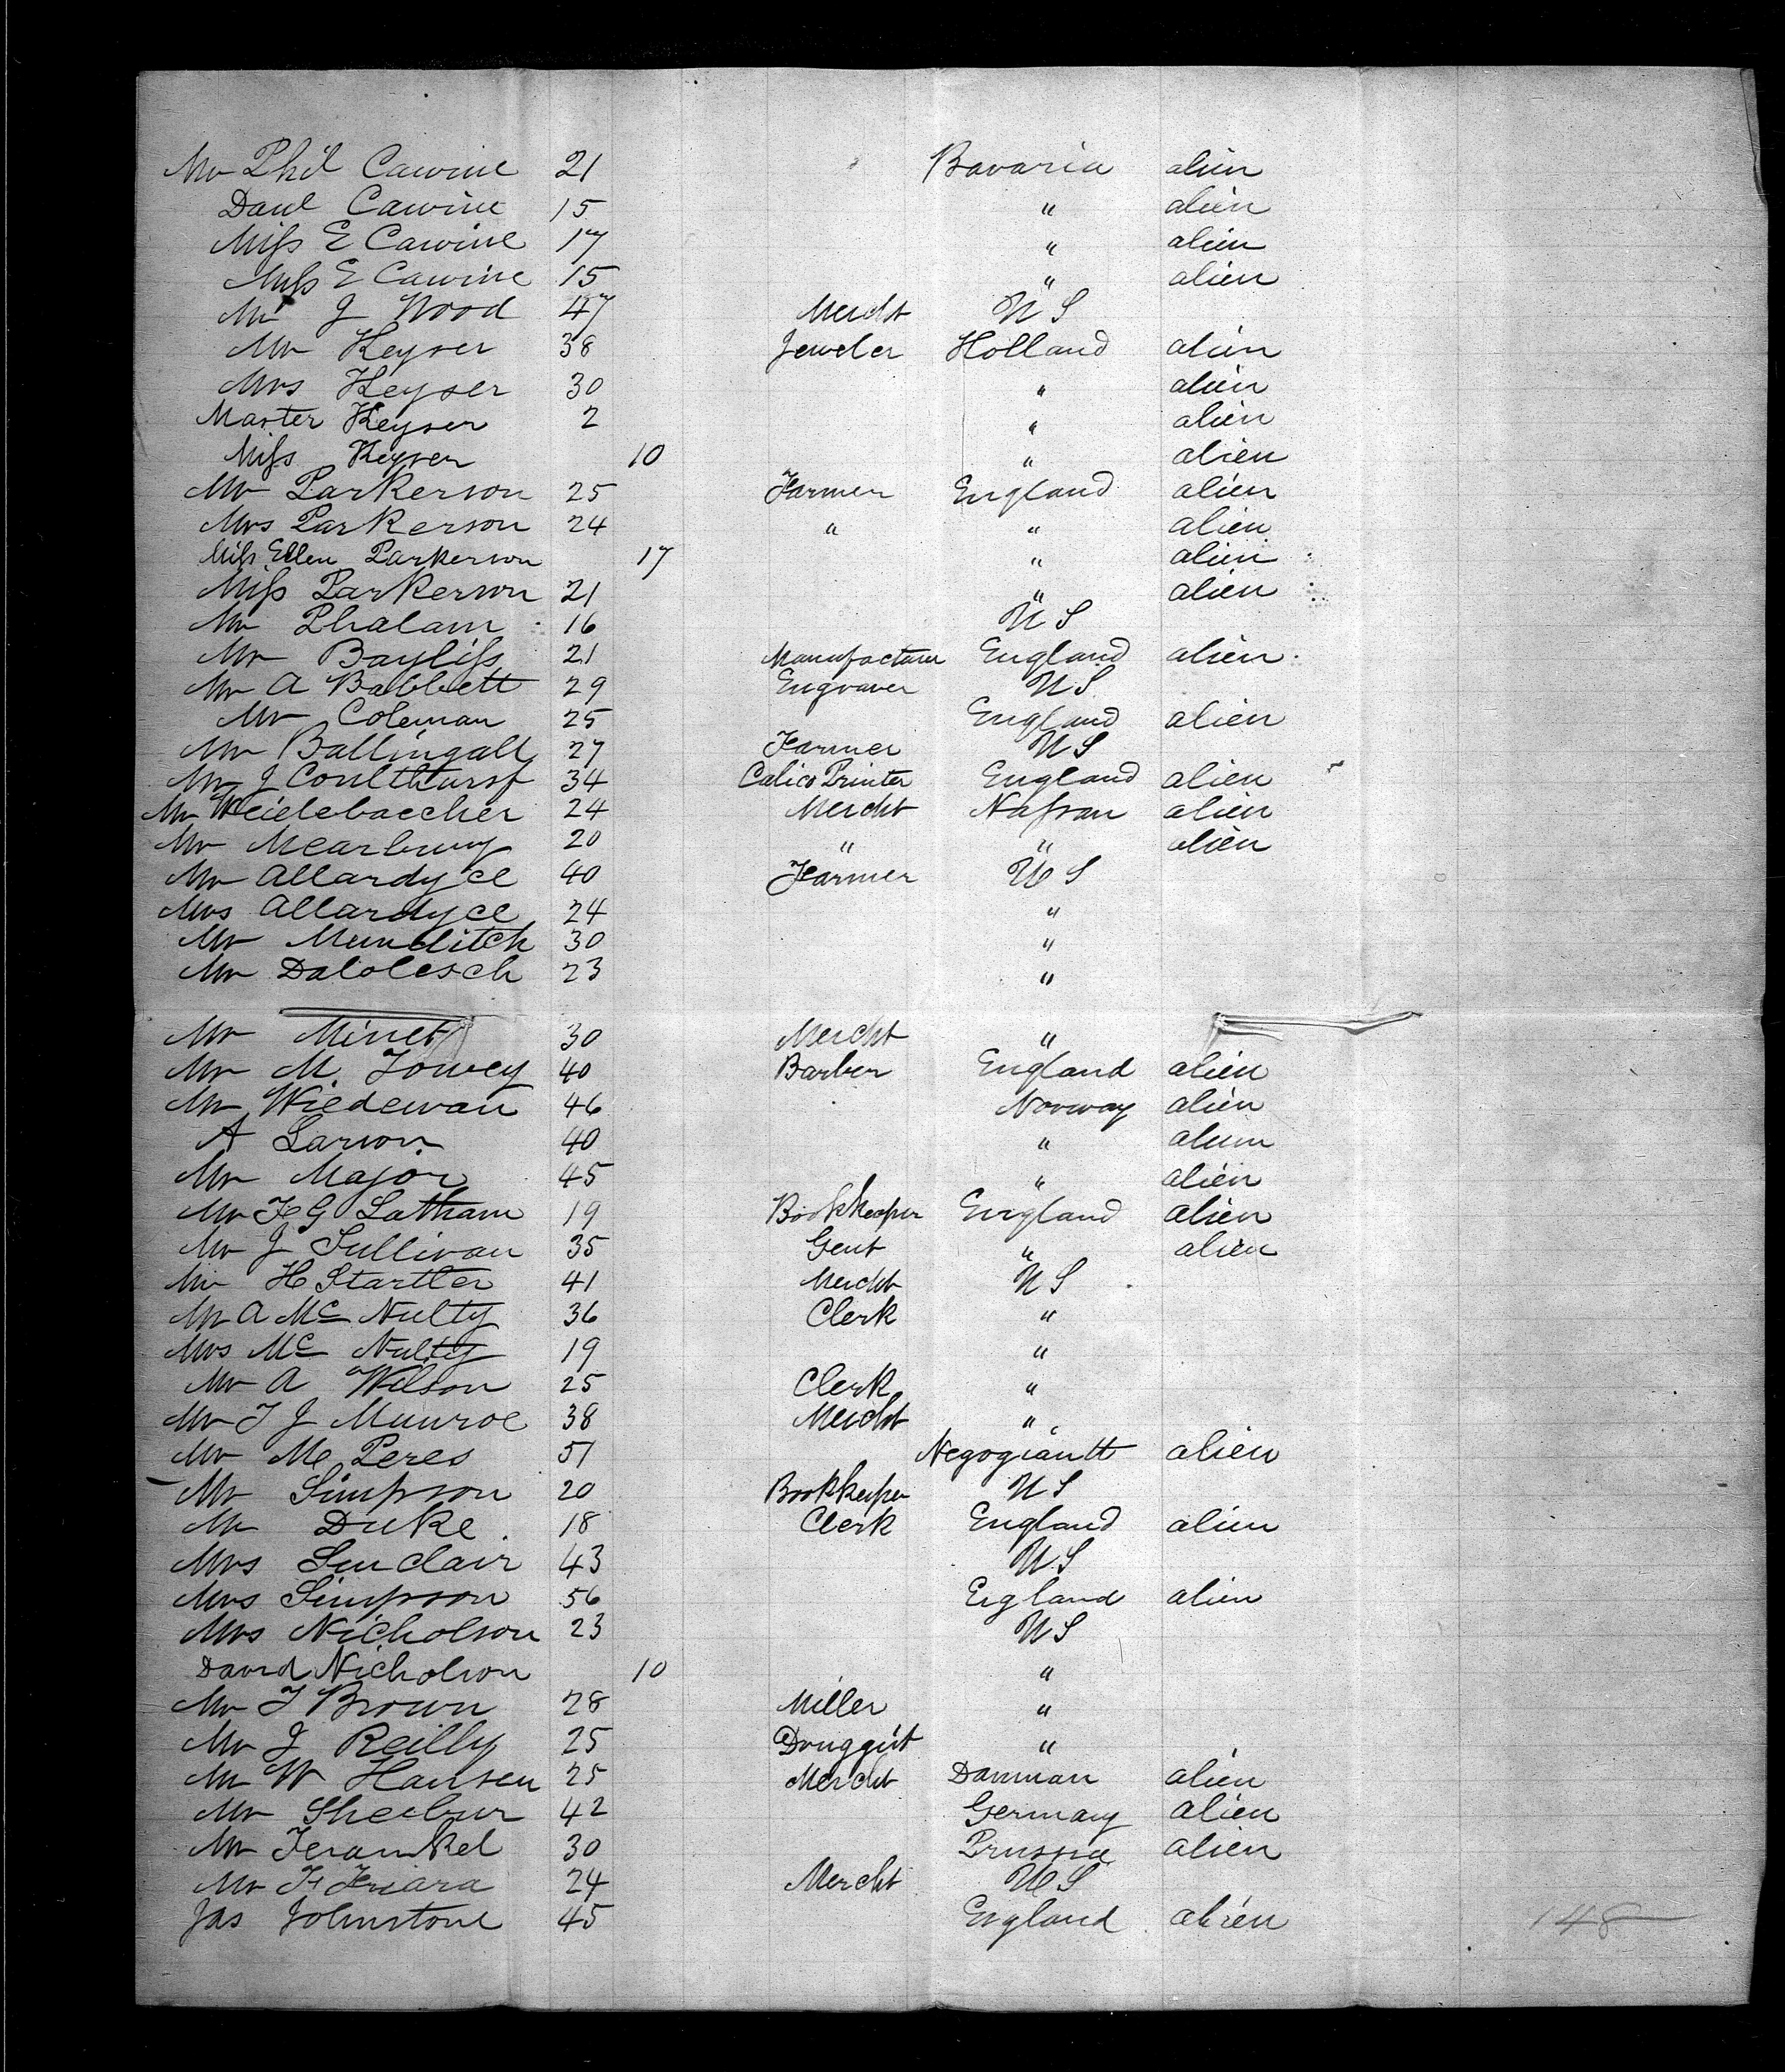 Mr Phil Cawine 21 Bavaria alien
Danl Cawine 15 " alien
Miss E Cawine 17 " alien
Miss E Cawine 15 " alien
Mr J Wood 47 Mercht U S
Mr Keyser 38 Jeweler Holland alien
Mrs Keyser 30 " alien
Master Keyser 2 " alien
Miss Keyser 10 " alien
Mr Parkerson 25 Farmer England alien
Mrs Parkerson 24 " " alien
Miss Ellen Parkerson 17 " alien
Miss Parkerson 21 " alien
Mr Phalam 16 U S
Mr Bayliss 21 Manufacturer England alien
Mr A Babbett 29 Engraver U S
Mr Coleman 25 England alien
Mr Ballingall 27 Farmer U S
Mr J Coulthurst 34 Calico Printer England alien
Mr Weidebaecher 24 Mercht Nassau alien
Mr 20 " " alien
Mr Allardyce 40 Farmer U S
Mrs Allardyce 24 "
Mr Munditch 30 "
Mr Dalolesch 23 "
Mr Minet 30 Mercht "
Mr M Towey 40 Barber England alien
Mr Wiedewan 46 Norway alien
A Larson 40 " alien
Mr Major 45 " alien
Mr F G Latham 19 Bookkeeper England alien
Mr J Sullivan 35 Gent " alien
Mr H Startler 41 Mercht U S
Mr A Mc Nulty 36 Clerk "
Mrs Mc Nulty 19 "
Mr A Wilson 25 Clerk "
Mr T J Munroe 38 Mercht "
Mr M Peres 51 Negogiantt alien
Mr Simpson 20 Bookkeeper U S
Mr Duke 18 Clerk England alien
Mrs Sinclair 43 U S
Mrs Simpson 56 England alien
Mrs Nicholson 23 U S
David Nicholson 10 "
Mr T Brown 28 Miller "
Mr J Reilly 25 Druggist "
Mr W Hansen 25 Mercht Danman alien
Mr Sheebur 42 Germany alien
Mr Feramkel 30 Prussia alien
Mr F Friara 24 Mercht U S
Jas Johnstone 45 England alien
148